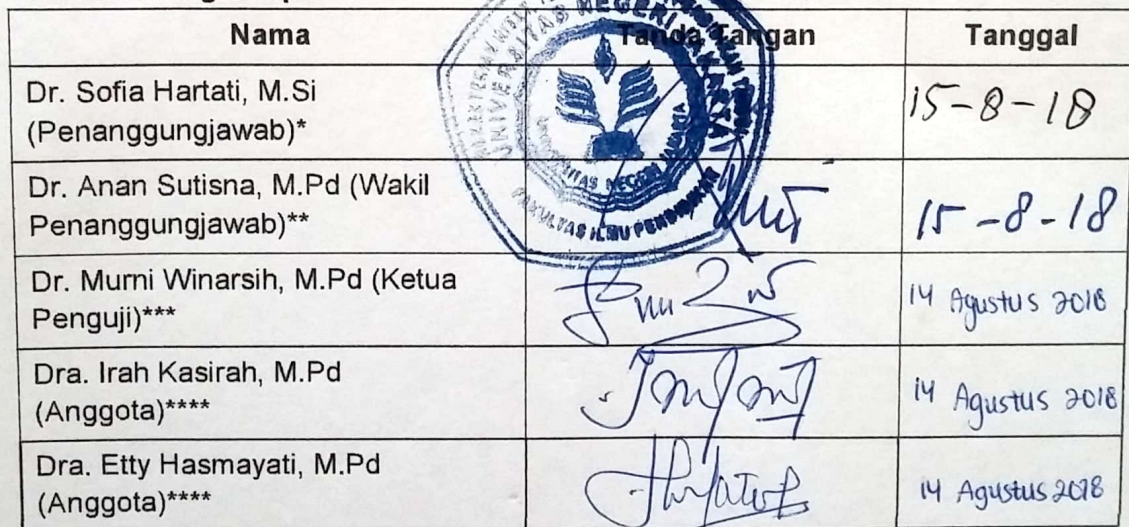 Nama Tanda Tangan Tanggal
Dr. Sofia Hartati, M.Si
(Penanggungjawab)*
15-8-18
Dr. Anan Sutisna, M.Pd (Wakil
Penanggungjawab)**
15-8-18
Dr. Murni Winarsih, M.Pd (Ketua
Penguji)***
14 Agustus 2018
Dra. Irah Kasirah, M.Pd
(Anggota)****
14 Agustus 2018
Dra. Etty Hasmayati, M.Pd
(Anggota)****
14 Agustus 2018
UNIVERSITAS NEGERI JAKARTA
FAKULTAS ILMU PENDIDIKAN